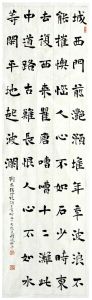 城西門前灩澦堆年年波浪不
能摧懊惱人心不如石少時東
去復西來瞿塘嘈嘈十二灘人
言道路古來難長恨人心不如水
等閒平地起波瀾
劉禹錫竹枝詞